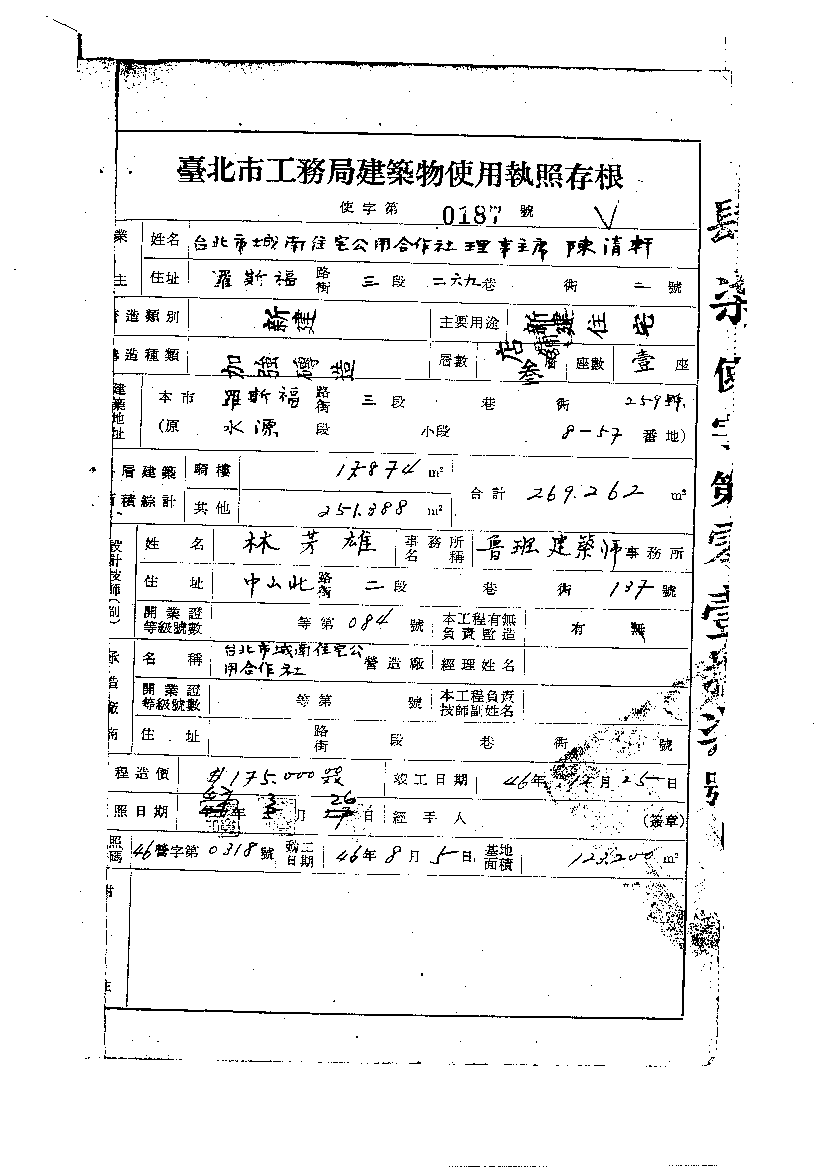 臺北市工務局建築物使用執照存根
使字第 0187 號
業主 姓名 台北市城南住宅公用合作社理事主席 陳清軒
住址 羅斯福 路街 三 段 二六九 巷 街 二 號
造類別 新建 主要用途 店鋪 住宅
造種類 加強磚造 層數 參 座數 壹 座
建築地址 本市 羅斯福 路街 三 段 巷 街 259號
(原 水源 段 小段 8-57 番地)
層建築面積綜計 騎樓 17.874 m²
其他 251.388 m² 合計 269.262 m²
設計技師(副) 姓名 林芳雄 事務所名稱 魯班建築師事務所
住址 中山北 路街 二 段 巷 街 137 號
開業證等級號數 等第 084 號 本工程有無負責監造 有 無
承造廠商 名稱 台北市城南住宅公用合作社 營造廠 經理姓名
開業證等級號數 等第 號 本工程負責技師副姓名
住址 路街 段 巷 街 號
程造價 $175.000 竣工日期 46年 12月 25日
照日期 47 年 3 月 26 日 經手人 (簽章)
照碼 46營字第0318號 日期 46年8月5日 基地面積 123.200 m²
註